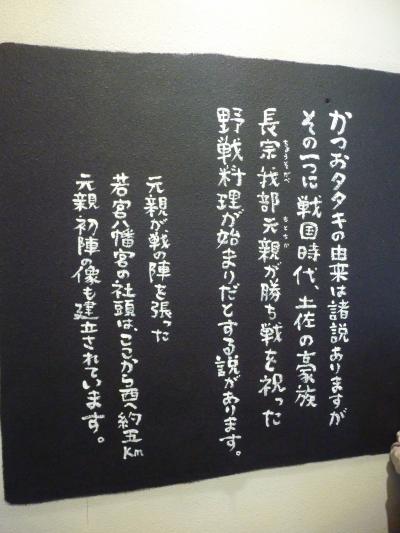 かつおタタキの由来は諸説ありますが
その一つに戦国時代、土佐の豪族
長宗我部元親が勝ち戦を祝った
ちょうそがべ
もとちか
野戦料理が始まりだとする説があります。
元親が戦の陣を張った
若宮八幡宮の社頭は、ここから西へ約五Km
元親初陣の像も建立されています。